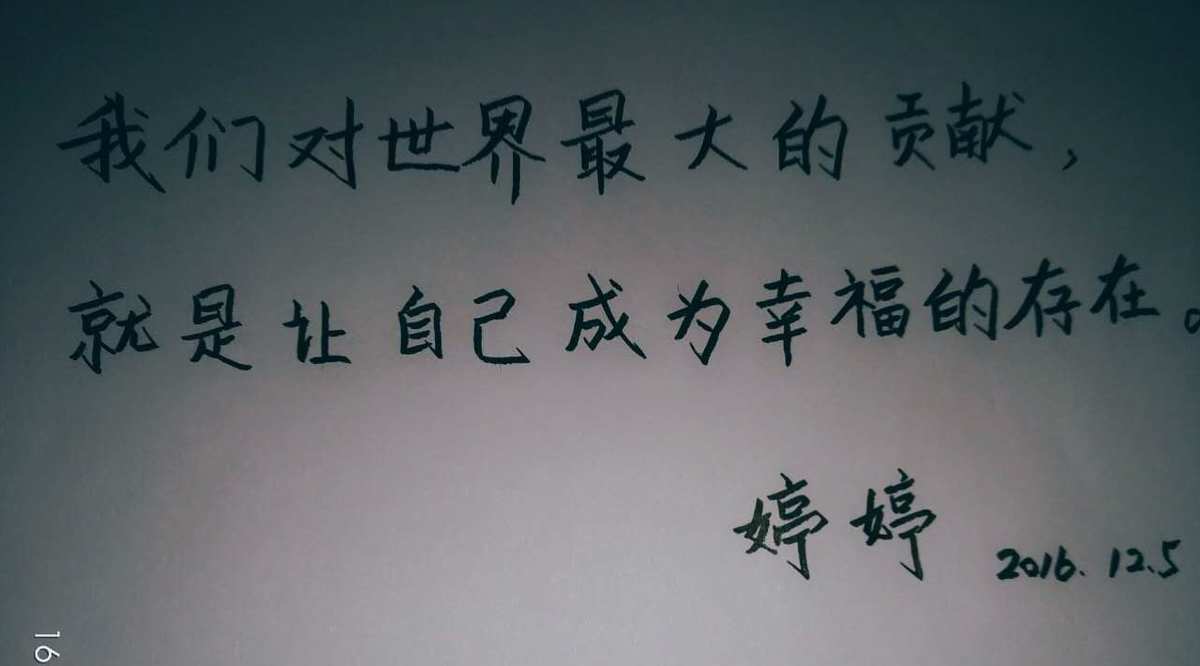 我们对世界最大的贡献，
就是让自己成为幸福的存在。
婷婷 2016.12.5
16